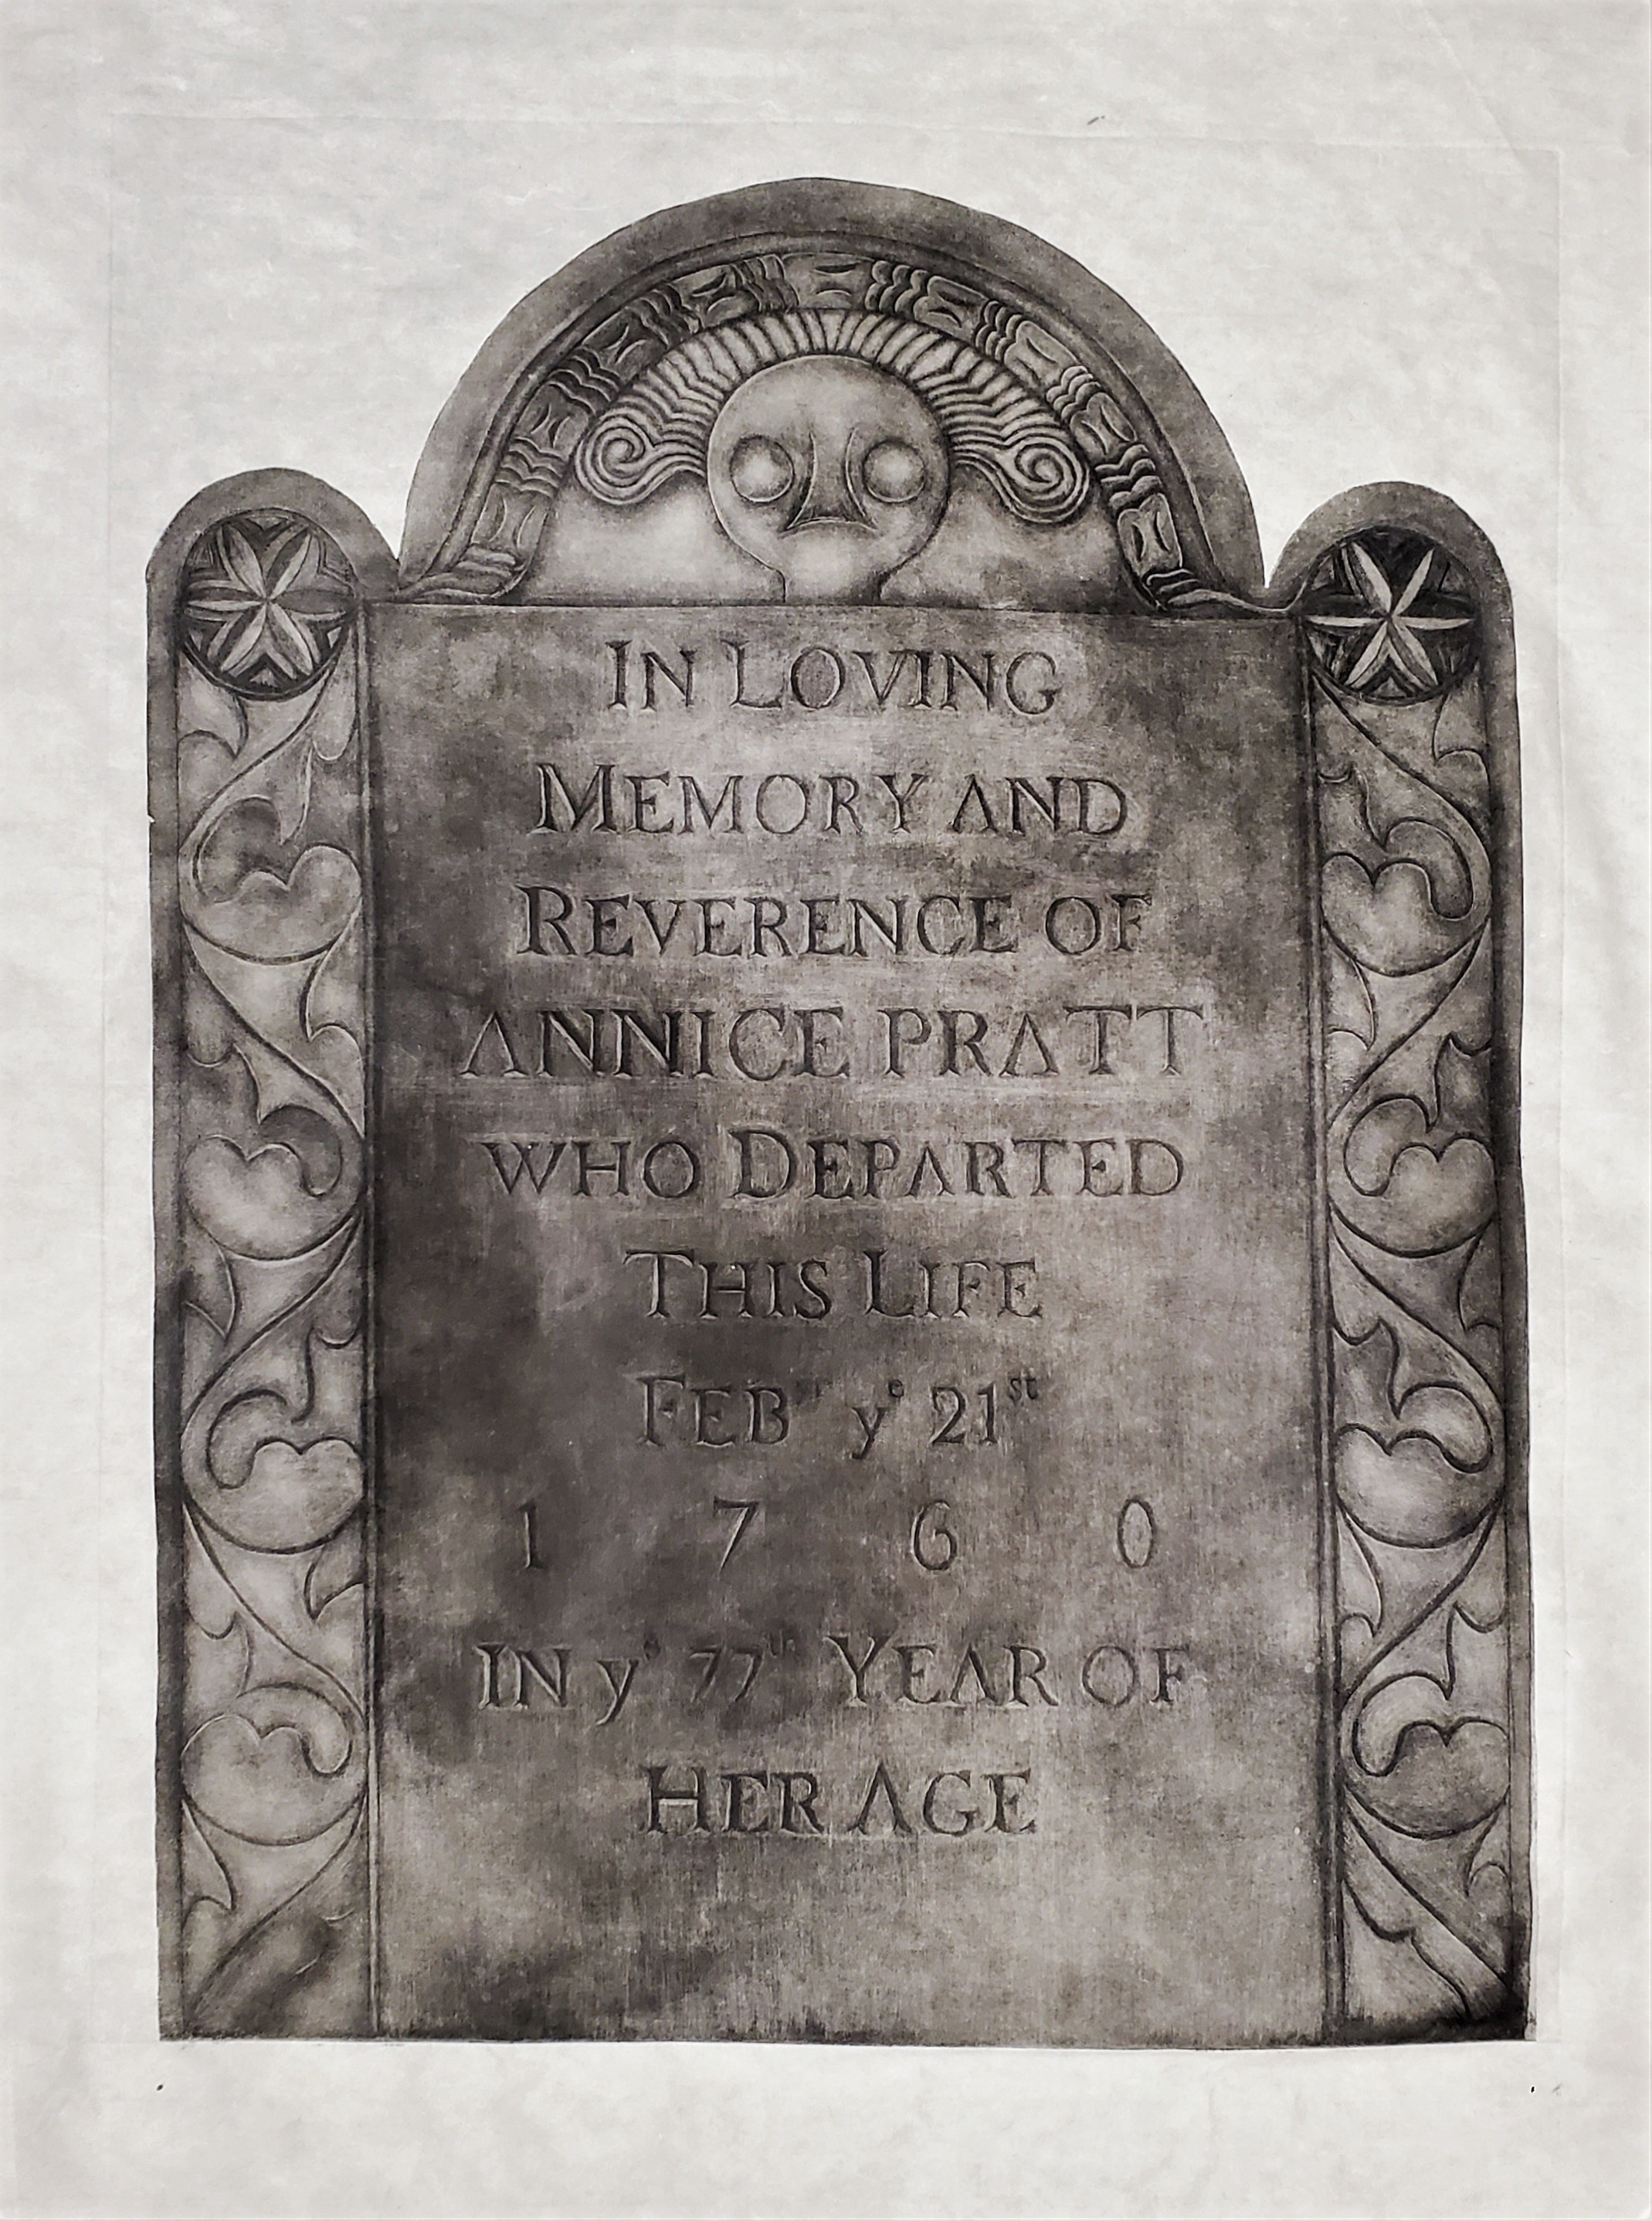 IN LOVING
MEMORY AND
REVERENCE OF
ANNICE PRATT
WHO DEPARTED
THIS LIFE
FEBry ye 21st
1 7 6 0
IN ye 77th YEAR OF
HER AGE